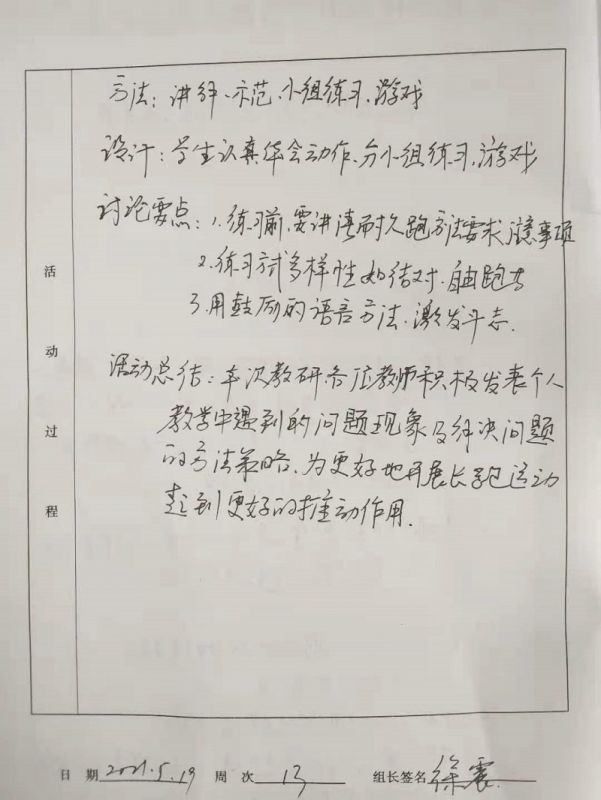 方法：讲解、示范、小组练习、游戏
设计：学生认真体会动作、分小组练习、游戏
讨论要点：1.练习前，要讲清耐久跑方法要求注意事项
2.练习方式多样性如结对、自由跑步
3.用鼓励的语言方法、激发斗志.
活动总结：本次教研各位教师积极发表个人
教学中遇到的问题现象及解决问题
的方法策略、为更好地开展长跑运动
起到更好的推动作用.
活动过程
日 期 2021.5.19 周 次 13 组长签名 徐震